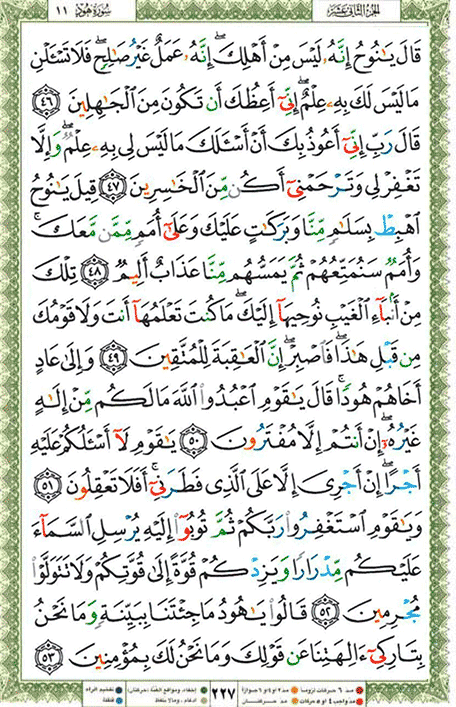 سورة هود ١١ الجزء الثاني عشر
قَالَ يَـٰنُوحُ إِنَّهُۥ لَيْسَ مِنْ أَهْلِكَ ۖ إِنَّهُۥ عَمَلٌ غَيْرُ صَـٰلِحٍ ۖ فَلَا تَسْـَٔلْنِ
مَا لَيْسَ لَكَ بِهِۦ عِلْمٌ ۖ إِنِّىٓ أَعِظُكَ أَن تَكُونَ مِنَ ٱلْجَـٰهِلِينَ ٤٦
قَالَ رَبِّ إِنِّىٓ أَعُوذُ بِكَ أَنْ أَسْـَٔلَكَ مَا لَيْسَ لِى بِهِۦ عِلْمٌ ۖ وَإِلَّا
تَغْفِرْ لِى وَتَرْحَمْنِىٓ أَكُن مِّنَ ٱلْخَـٰسِرِينَ ٤٧ قِيلَ يَـٰنُوحُ
ٱهْبِطْ بِسَلَـٰمٍ مِّنَّا وَبَرَكَـٰتٍ عَلَيْكَ وَعَلَىٰٓ أُمَمٍ مِّمَّن مَّعَكَ ۚ
وَأُمَمٌ سَنُمَتِّعُهُمْ ثُمَّ يَمَسُّهُم مِّنَّا عَذَابٌ أَلِيمٌ ٤٨ تِلْكَ
مِنْ أَنۢبَآءِ ٱلْغَيْبِ نُوحِيهَآ إِلَيْكَ ۖ مَا كُنتَ تَعْلَمُهَآ أَنتَ وَلَا قَوْمُكَ
مِن قَبْلِ هَـٰذَا ۖ فَٱصْبِرْ ۖ إِنَّ ٱلْعَـٰقِبَةَ لِلْمُتَّقِينَ ٤٩ وَإِلَىٰ عَادٍ
أَخَاهُمْ هُودًا ۚ قَالَ يَـٰقَوْمِ ٱعْبُدُوا۟ ٱللَّهَ مَا لَكُم مِّنْ إِلَـٰهٍ
غَيْرُهُۥٓ ۖ إِنْ أَنتُمْ إِلَّا مُفْتَرُونَ ٥٠ يَـٰقَوْمِ لَآ أَسْـَٔلُكُمْ عَلَيْهِ
أَجْرًا ۖ إِنْ أَجْرِىَ إِلَّا عَلَى ٱلَّذِى فَطَرَنِىٓ ۚ أَفَلَا تَعْقِلُونَ ٥١
وَيَـٰقَوْمِ ٱسْتَغْفِرُوا۟ رَبَّكُمْ ثُمَّ تُوبُوٓا۟ إِلَيْهِ يُرْسِلِ ٱلسَّمَآءَ
عَلَيْكُم مِّدْرَارًا وَيَزِدْكُمْ قُوَّةً إِلَىٰ قُوَّتِكُمْ وَلَا تَتَوَلَّوْا۟
مُجْرِمِينَ ٥٢ قَالُوا۟ يَـٰهُودُ مَا جِئْتَنَا بِبَيِّنَةٍ وَمَا نَحْنُ
بِتَارِكِىٓ ءَالِهَتِنَا عَن قَوْلِكَ وَمَا نَحْنُ لَكَ بِمُؤْمِنِينَ ٥٣
٢٢٧